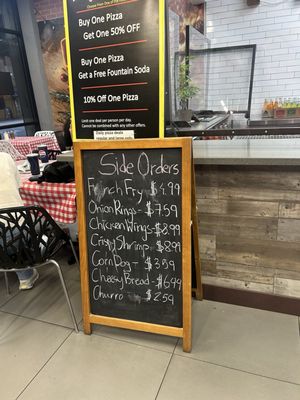 Buy One Pizza
Get One 50% OFF
Buy One Pizza
Get a Free Fountain Soda
10% Off One Pizza
Limit one deal per person per day.
Cannot be combined with any other offers.
Side Orders
French Fry $4.99
Onion Rings - $7.59
Chicken Wings - $8.99
Crispy Shrimp - $8.99
Corn Dog - $3.59
Cheesy Bread - $6.99
Churro - $2.59